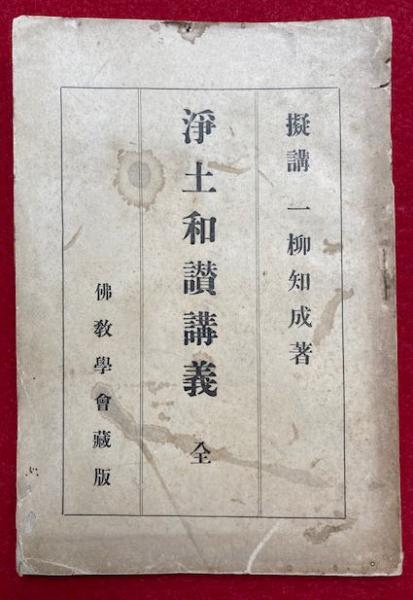 擬講 一柳知成著
淨土和讃講義 全
佛教學會藏版